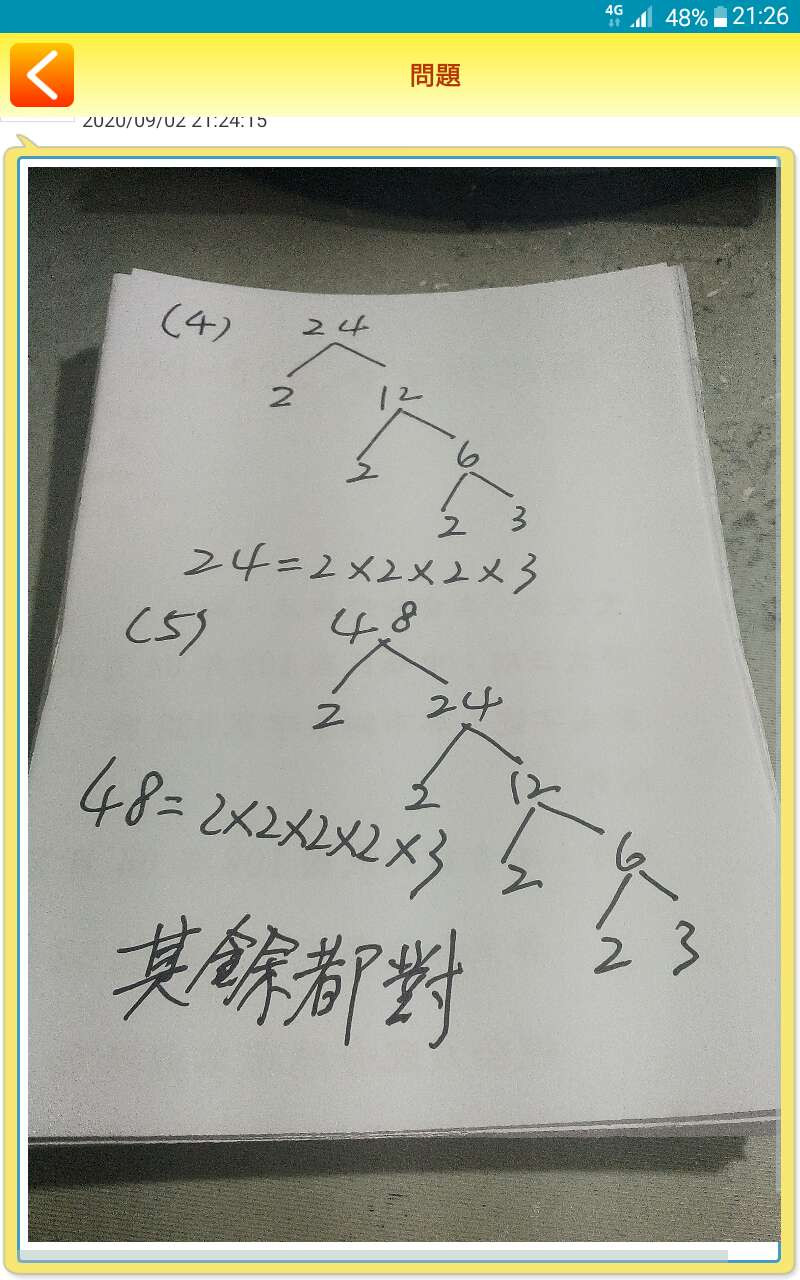 4G 48% 21:26
問題
2020/09/02 21:24:15
(4) 24
2 12
2 6
2 3
24=2×2×2×3
(5) 48
2 24
2 12
48=2×2×2×2×3
2 6
2 3
其餘都對